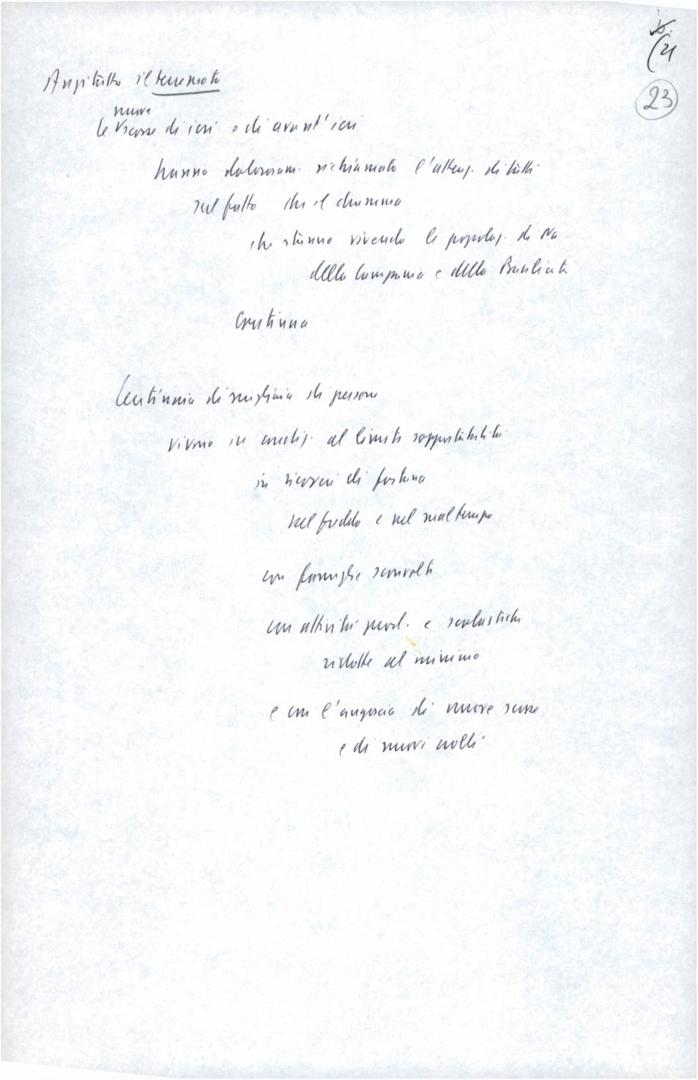 21
23
Anzitutto il terremoto
nuove
le scosse di ieri e di avant'ieri
hanno dolorosam. richiamato l'attenz. di tutti
sul fatto che il dramma
che stanno vivendo le popolaz. di Na
della Campania e della Basilicata
continua
Centinaia di migliaia di persone
vivono in condiz. al limite sopportabilità
in ricoveri di fortuna
nel freddo e nel maltempo
con famiglie sconvolte
con attività prod. e scolastiche
ridotte al minimo
e con l'angoscia di nuove scosse
e di nuovi crolli